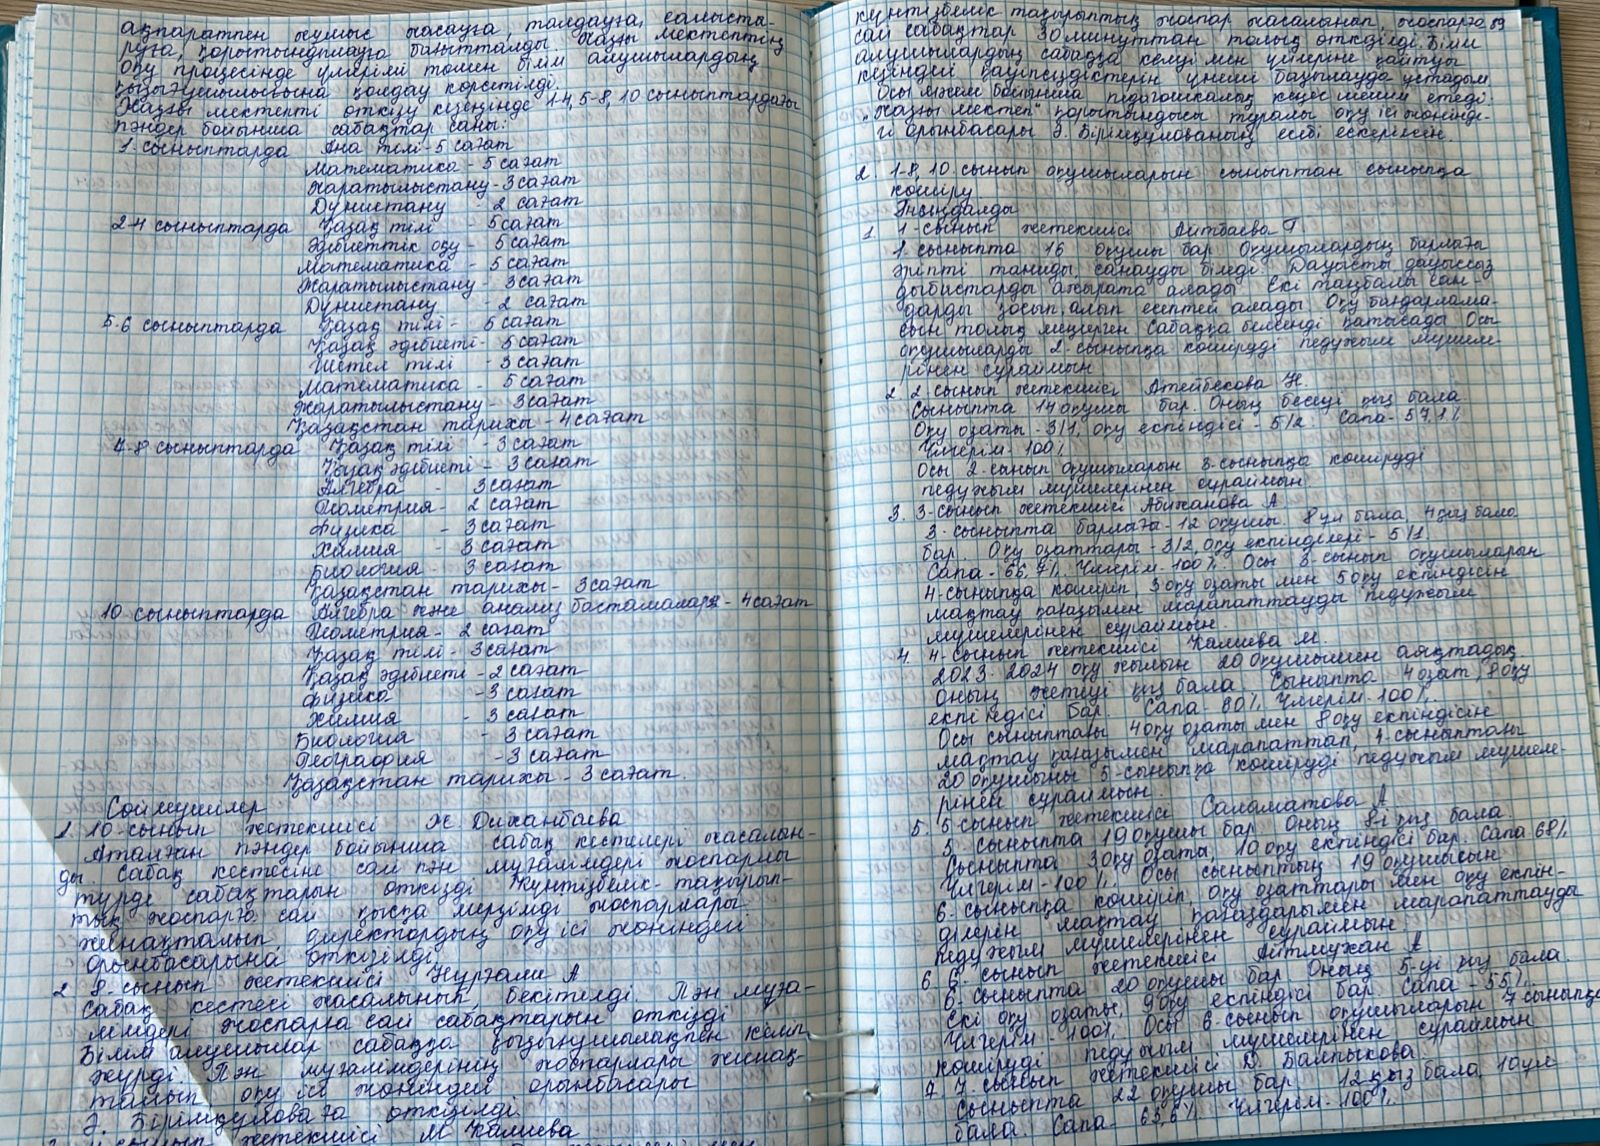 ақпаратпен жұмыс жасауға, талдауға, салыста-
руға, қорытындылауға бағытталды. Жазғы мектептің
оқу процесінде үлгерімі төмен білім алушылардың
қызығушылығына қолдау көрсетілді.
Жазғы мектепті өткізу кезеңінде 1-4, 5-8, 10 сыныптардағы
пәндер бойынша сабақтар саны:
1-сыныптарда Ана тілі - 5 сағат
Математика - 5 сағат
Жаратылыстану - 3 сағат
Дүниетану - 2 сағат
2-4 сыныптарда Қазақ тілі - 5 сағат
Әдебиеттік оқу - 5 сағат
Математика - 5 сағат
Жаратылыстану - 3 сағат
Дүниетану - 2 сағат
5-6 сыныптарда Қазақ тілі - 5 сағат
Қазақ әдебиеті - 5 сағат
Шетел тілі - 3 сағат
Математика - 5 сағат
Жаратылыстану - 3 сағат
Қазақстан тарихы - 4 сағат
7-8 сыныптарда Қазақ тілі - 3 сағат
Қазақ әдебиеті - 3 сағат
Алгебра - 3 сағат
Геометрия - 2 сағат
Физика - 3 сағат
Химия - 3 сағат
Биология - 3 сағат
Қазақстан тарихы - 3 сағат
10-сыныптарда Алгебра және анализ бастамалары - 4 сағат
Геометрия - 2 сағат
Қазақ тілі - 3 сағат
Қазақ әдебиеті - 2 сағат
Физика - 3 сағат
Химия - 3 сағат
Биология - 3 сағат
География - 3 сағат
Қазақстан тарихы - 3 сағат.
Сөйлеушілер
1. 10-сынып жетекшісі Ж. Диханбаева
Аталған пәндер бойынша сабақ кестелері жасалын-
ды. Сабақ кестесіне сай пән мұғалімдері жоспарлы
түрде сабақтарын өткізді. Күнтізбелік-тақырып-
тық жоспарға сай қысқа мерзімді жоспарлары
жинақталып, директордың оқу ісі жөніндегі
орынбасарына өткізілді.
2 8-сынып жетекшісі Нұрғали А
Сабақ кестесі жасалынып, бекітілді. Пән мұға-
лімдері жоспарға сай сабақтарын өткізді
Білім алушылар сабаққа қызығушылықпен келіп
жүрді. Пән мұғалімдерінің жоспарлары жинақ-
талып оқу ісі жөніндегі орынбасары
Э. Бірімқұловаға өткізілді.
сынып жетекшісі М Калиева
күнтізбелік тақырыптық жоспар жасалынып, жоспарға 89
сай сабақтар 30 минуттан толық өткізілді. Білім
алушылардың сабаққа келуі мен үйлеріне қайтуы
кезіндегі қауіпсіздіктерін үнемі бақылауда ұстадым.
Осы мәселе бойынша педагогикалық кеңес шешім етеді:
„Жазғы мектеп" қорытындысы туралы оқу ісі жөнінде-
гі орынбасары Э. Бірімқұлованың есебі ескерілсін.
2. 1-8, 10 сынып оқушыларын сыныптан сыныпқа
көшіру
Тыңдалды
1. 1-сынып жетекшісі Айтбаева Г.
1 сыныпта 16 оқушы бар Оқушылардың барлығы
әріпті таниды, санауды біледі. Дауысты дауыссыз
дыбыстарды ажырата алады Екі таңбалы сан-
дарды қосып, алып есептей алады Оқу бағдарлама-
сын толық меңгерген Сабаққа белсенді қатысады Осы
оқушыларды 2-сыныпқа көшіруді педұжым мүшеле-
рінен сұраймын
2. 2 сынып жетекшісі Атейбекова Н.
Сыныпта 14 оқушы бар. Оның бесеуі қыз бала
Оқу озаты - 3/1, оқу екпіндісі - 5/2. Сапа - 57,1%
Үлгерім - 100%
Осы 2-сынып оқушыларын 3-сыныпқа көшіруді
педұжым мүшелерінен сұраймын
3. 3-сынып жетекшісі Абижанова А
3-сыныпта барлығы - 12 оқушы. 8 ұл бала, 4 қыз бала
бар. Оқу озаттары - 3/2, оқу екпінділері - 5/1.
Сапа - 66,7%, Үлгерім - 100%. Осы 3-сынып оқушыларын
4-сыныпқа көшіріп, 3 оқу озаты мен 5 оқу екпіндісін
мақтау қағазымен марапаттауды педұжым
мүшелерінен сұраймын.
4. 4-сынып жетекшісі Калиева М.
2023-2024 оқу жылын 20 оқушымен аяқтадық
Оның жетеуі қыз бала Сыныпта 4 озат, 8 оқу
екпіндісі бар. Сапа - 80%, Үлгерім - 100%.
Осы сыныптағы 4 оқу озаты мен 8 оқу екпіндісін
мақтау қағазымен марапаттап, 4-сыныптағы
20 оқушыны 5-сыныпқа көшіруді педұжым мүшеле-
рінен сұраймын
5. 5 сынып жетекшісі Саламатова А
5-сыныпта 19 оқушы бар Оның 8-і қыз бала.
Сыныпта 3 оқу озаты, 10 оқу екпіндісі бар. Сапа 68%
Үлгерім - 100%. Осы сыныптың 19 оқушысын
6-сыныпқа көшіріп, оқу озаттары мен оқу екпін-
ділерін мақтау қағаздарымен марапаттауды
педұжым мүшелерінен сұраймын.
6. 6-сынып жетекшісі Айтмұхан А
6-сыныпта 20 оқушы бар Оның 5-уі қыз бала.
Екі оқу озаты, 9 оқу екпіндісі бар Сапа - 55%.
Үлгерім - 100%. Осы 6-сынып оқушыларын 7 сыныпқа
көшіруді педұжым мүшелерінен сұраймын
7. 7-сынып жетекшісі Д. Балпыкова.
Сыныпта 22 оқушы бар 12 қыз бала, 10 ұл
бала. Сапа - 63,6% Үлгерім - 100%.